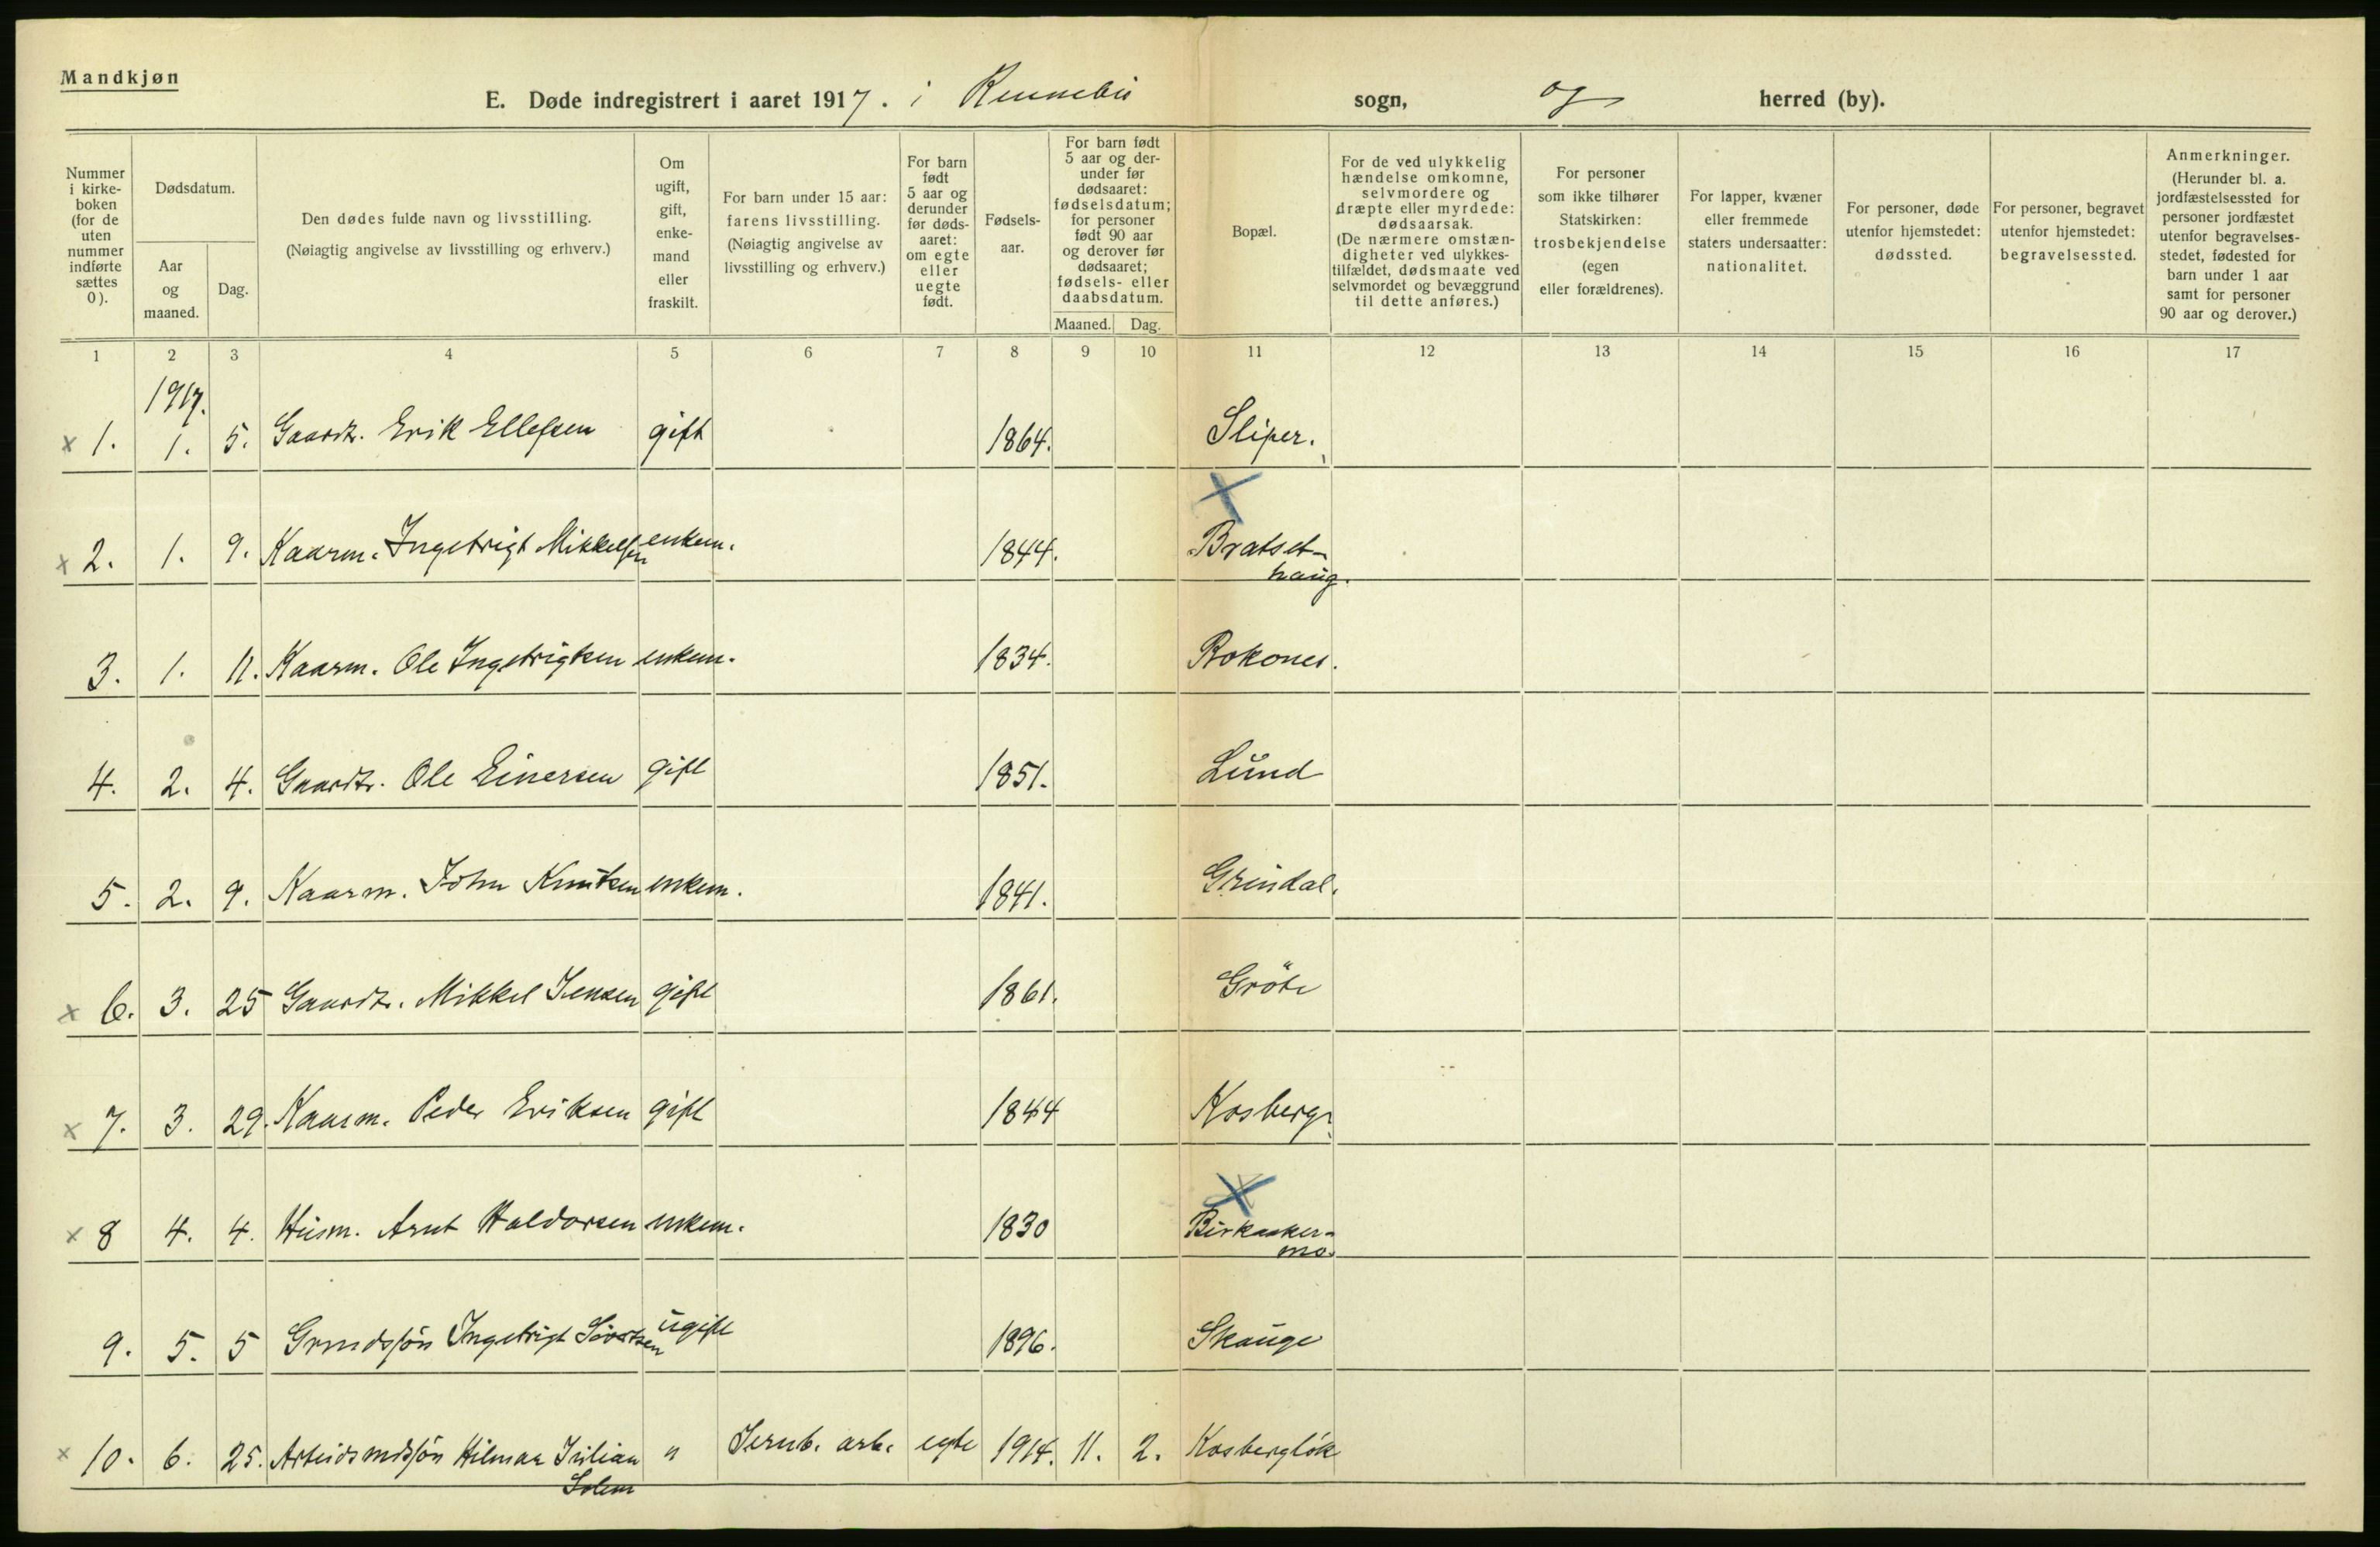 Mandkjøn
E. Døde indregistrert i aaret 1917. i Rennebu sogn, og herred (by).
Nummer i kirke-boken (for de uten nummer indførte sættes 0).
Dødsdatum.
Aar og maaned.
Dag.
Den dødes fulde navn og livsstilling.
(Nøiagtig angivelse av livsstilling og erhverv.)
Om ugift, gift, enke-mand eller fraskilt.
For barn under 15 aar: farens livsstilling. (Nøiagtig angivelse av livsstilling og erhverv.)
For barn født 5 aar og derunder før døds-aaret: om egte eller uegte født.
Fødsels-aar.
For barn født 5 aar og der-under før dødsaaret: fødselsdatum; for personer født 90 aar og derover før dødsaaret; fødsels- eller daabsdatum.
Maaned. Dag.
Bopæl.
For de ved ulykkelig hændelse omkomne, selvmordere og dræpte eller myrdede: dødsaarsak. (De nærmere omstæn-digheter ved ulykkes-tilfældet, dødsmaate ved selvmordet og bevæggrund til dette anføres.)
For personer som ikke tilhører Statskirken: trosbekjendelse (egen eller forældrenes).
For lapper, kvæner eller fremmede staters undersaatter: nationalitet.
For personer, døde utenfor hjemstedet: dødssted.
For personer, begravet utenfor hjemstedet: begravelsessted.
Anmerkninger. (Herunder bl. a. jordfæstelsessted for personer jordfæstet utenfor begravelses-stedet, fødested for barn under 1 aar samt for personer 90 aar og derover.)
1 2 3 4 5 6 7 8 9 10 11 12 13 14 15 16 17
1917.
x 1. 1. 5. Gaardbr. Erik Ellefsen gift 1864. Sliper.
x 2. 1. 9. Kaarm. Ingebrigt Mikkelsen enkem. 1844. Bratset-
haug.
3. 1. 11. Kaarm. Ole Ingebrigtsen enkem. 1834. Rokones.
4. 2. 4. Gaardbr. Ole Einersen gift 1851. Lund
5. 2. 9. Kaarm. John Knutsen enkem. 1841. Grindal.
x 6. 3. 25 Gaardbr. Mikkel Jensen gift 1861. Gröte
x 7. 3. 29. Kaarm. Peder Eriksen gift 1844 Kosberg
x 8 4. 4. Husm. Arnt Haldorsen enkem. 1830 Birkaaker-
mo.
9. 5. 5 Grmdsøn Ingebrigt Sivertsen ugift 1896. Skauge
x 10. 6. 25. Arbeidsmdsøn Hilmar Julian " Jernb. arb. egte 1914. 11. 2. Kosbergløk
Solem